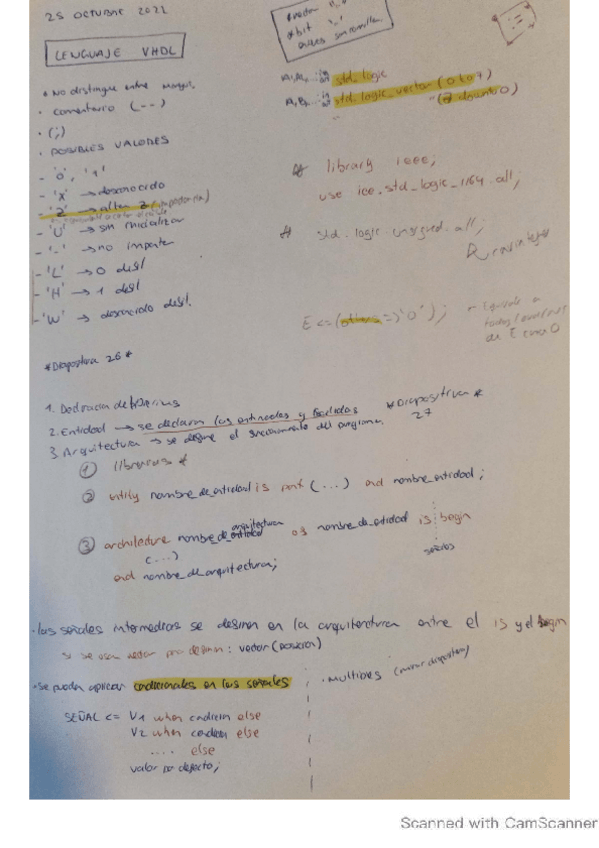 25 OCTUBRE 2022
* vector " "
* bit ' '
LENGUAJE VHDL
* No distingue entre mayus.
· comentario (--)
· (;)
· POSIBLES VALORES
- '0', '1'
- 'X' → desconocido
- 'Z' → alta Z (impedancia)
- 'U' → sin inicializar
- '-' → no importa
- 'L' → 0 debil
- 'H' → 1 debil
- 'W' → desconocido debil.
std_logic
std_logic_vector (0 to 7)
(7 downto 0)
* library ieee;
use ieee.std_logic_1164.all;
* std_logic_unsigned.all;
E <= (others => '0');
- Equivale a
todos
de E como 0
*Diapositiva 26*
1. Declaración de librerias
2. Entidad → se declaran las entradas y salidas
3. Arquitectura → se define el funcionamiento del programa.
*Diapositiva*
27
① librerias *
② entity nombre_de_entidad is port (...) end nombre_entidad;
③ architecture nombre_de_arquitectura of nombre_de_entidad is begin
(...)
señales
end nombre_de_arquitectura;
· las señales intermedias se definen en la arquitectura entre el is y el begin
si se usan vector : vector (posicion)
· se pueden aplicar condicionales en las señales
· Multibits (mirar diapositiva)
SEÑAL <= V1 when condicion else
V2 when condicion else
.... else
valor por defecto;
Scanned with CamScanner